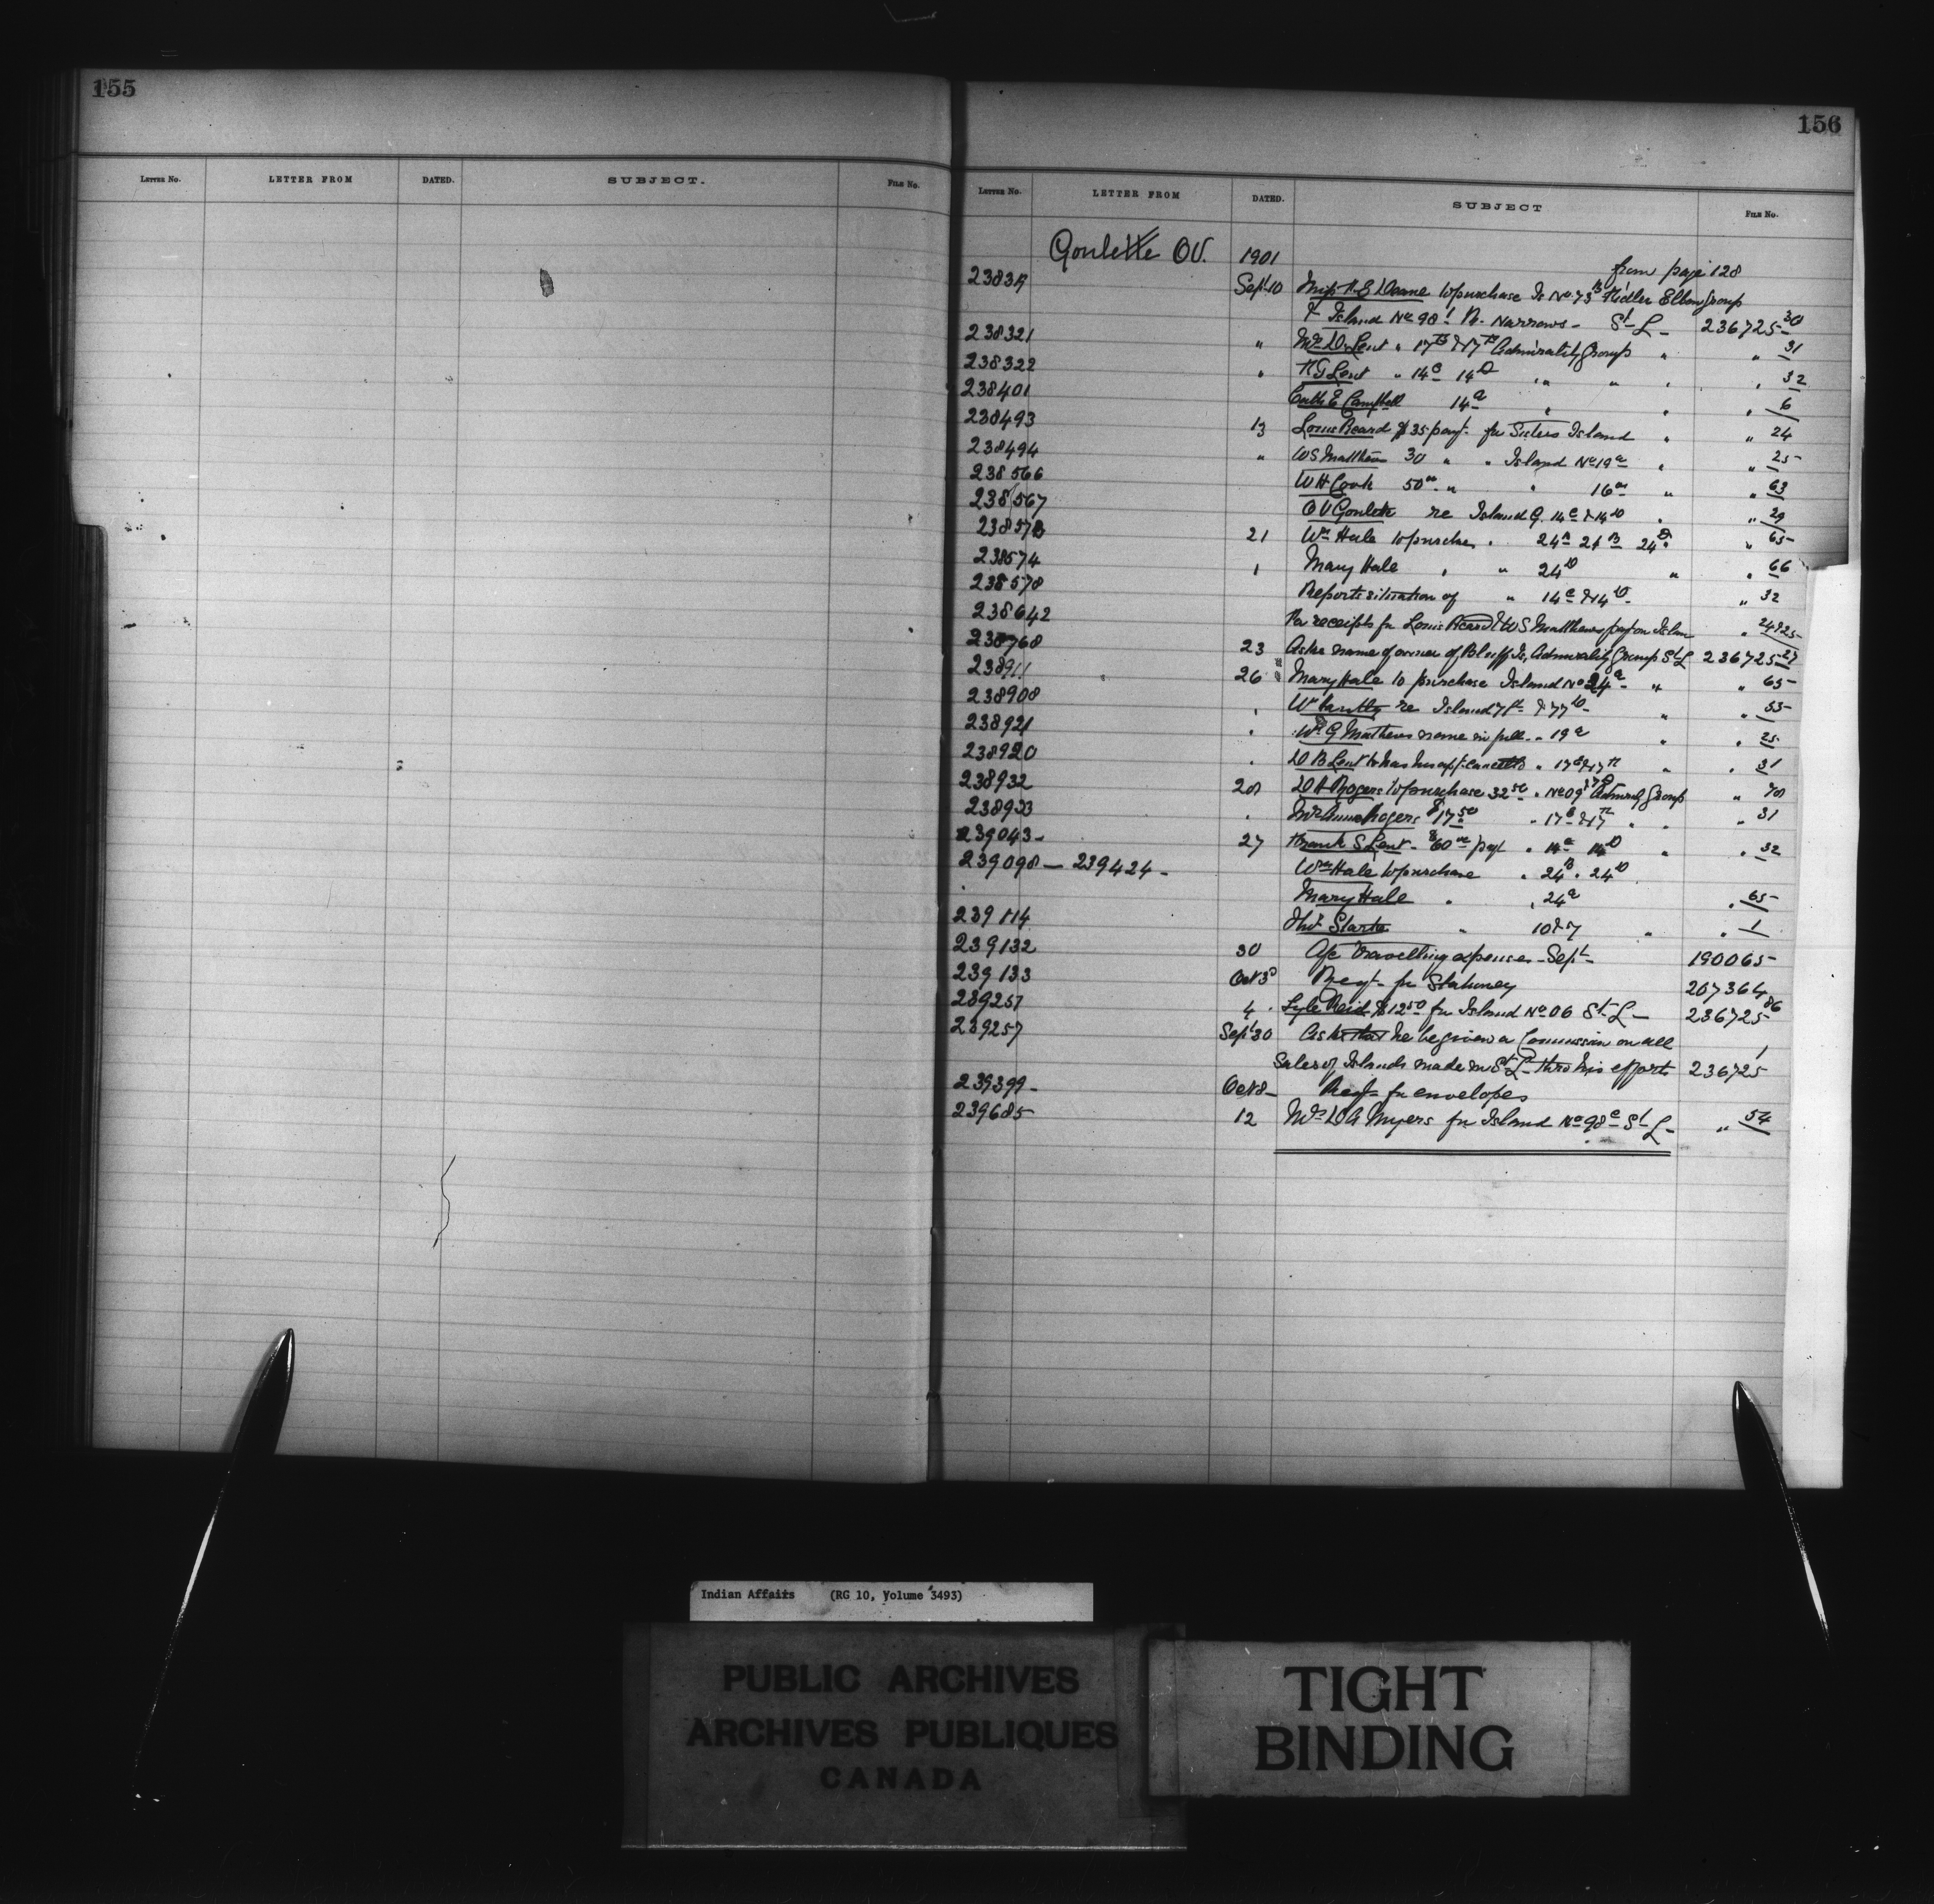 155
156
LETTER NO. LETTER FROM DATED. SUBJECT. FILE NO.
LETTER NO. LETTER FROM DATED. SUBJECT FILE NO.
Goulette O.V. 1901
from page 128
Sept 10 H E Deane to purchase Is No 73 B Fidler Elbow Group
& Island No 98 Narrows - St L - 236725-30
238321 " Lent " Admirality Group " " 31
238322 " H G Lent " 14 C 14 D " " " " 32
238401 E Campbell 14 a " " " 6
238493 13 Louis Ricard $35 payt. for Sisters Island " " 24
238494 " W S Matthews 30 " " Island No 19 a " " 25
238566 W H Cook 50 " " 16 " " 63
238567 O V Goulette re Island 14 C & 14 D " " 29
21 Wm Hale to purchase " 24 B 24 D " 65
238574 " Mary Hale " " 24 D " " 66
238578 Reports situation of " 14 C & 14 D - " 32
238642 receipts for Louis Ricard & W S Matthews pay on Islan " 24&25
238768 23 Asks name of owner of Bluff Is, Admirality Group St L 236725-27
238911 26 Mary Hale to purchase Island No 24 a - " " 65
238908 " re Island " " 55
238921 " W G Mathews name in full - 19 a " " 25
238920 " D B Lent to have his appt. cancelled " " " 31
238932 28 D A Rogers to purchase 32 50 " Admiralty Group "
238933 " Mrs Anna Rogers $17 50 " " " " 31
239043 - 27 Frank S Lent - $60 payt " 14 D " " 32
239098 — 239424 - Wm Hale to purchase " 24 B " 24 D
Mary Hale " " 24 a " 65
239114 Starke " 10 & 7 " " 1
239132 30 a/c travelling expenses - Sept - 190065
239133 Oct 3 Reqt - for Stationery 207364
239257 4 Lyle Reid $12 50 for Island St L - 236725 86
239257 Sept 30 Asks that he be given a Commission on all
Sales of Islands made in St L - thro his efforts 236725 1
239399 - Oct 8 - Reqt for envelopes
239685 12 Mrs D A Myers for Island No 98 c St L - " 54
Indian Affairs (RG 10, Volume 3493)
PUBLIC ARCHIVES
ARCHIVES PUBLIQUES
CANADA
TIGHT
BINDING